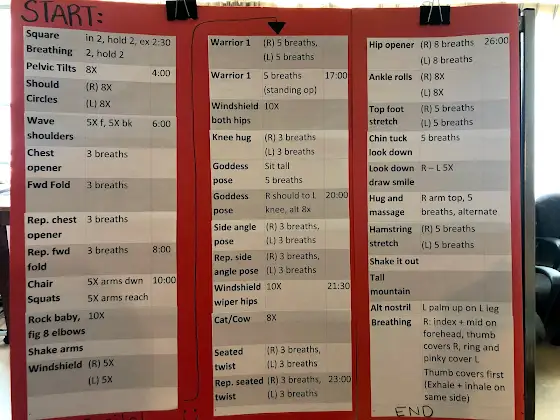 START:
Square in 2, hold 2, ex 2:30
Breathing 2, hold 2
Pelvic Tilts 8X 4:00
Should (R) 8X
Circles (L) 8X
Wave 5X f, 5X bk 6:00
shoulders
Chest 3 breaths
opener
Fwd Fold 3 breaths
Rep. chest 3 breaths
opener
Rep. fwd 3 breaths 8:00
fold
Chair 5X arms dwn 10:00
Squats 5X arms reach
Rock baby, 10X
fig 8 elbows
Shake arms
Windshield (R) 5X
(L) 5X
Warrior 1 (R) 5 breaths,
(L) 5 breaths
Warrior 1 5 breaths 17:00
(standing op)
Windshield 10X
both hips
Knee hug (R) 3 breaths
(L) 3 breaths
Goddess Sit tall
pose 5 breaths
Goddess R should to L 20:00
pose knee, alt 8x
Side angle (R) 3 breaths,
pose (L) 3 breaths
Rep. side (R) 3 breaths,
angle pose (L) 3 breaths
Windshield 10X 21:30
wiper hips
Cat/Cow 8X
Seated (R) 3 breaths,
twist (L) 3 breaths
Rep. seated (R) 3 breaths, 23:00
twist (L) 3 breaths
Hip opener (R) 8 breaths 26:00
(L) 8 breaths
Ankle rolls (R) 8X
(L) 8X
Top foot (R) 5 breaths
stretch (L) 5 breaths
Chin tuck 5 breaths
look down
Look down R – L 5X
draw smile
Hug and R arm top, 5
massage breaths, alternate
Hamstring (R) 5 breaths
stretch (L) 5 breaths
Shake it out
Tall
mountain
Alt nostril L palm up on L leg
Breathing R: index + mid on
forehead, thumb
covers R, ring and
pinky cover L
Thumb covers first
(Exhale + inhale on
same side)
END